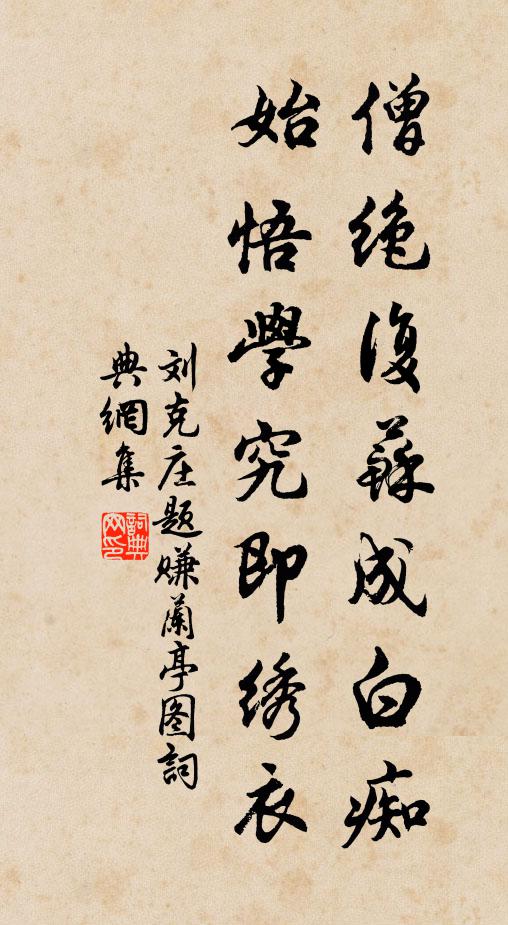 僧絶復蘇成白痴
始悟學究即绣衣
刘克庄题赚蘭亭图詞
典網集
詞典
网印